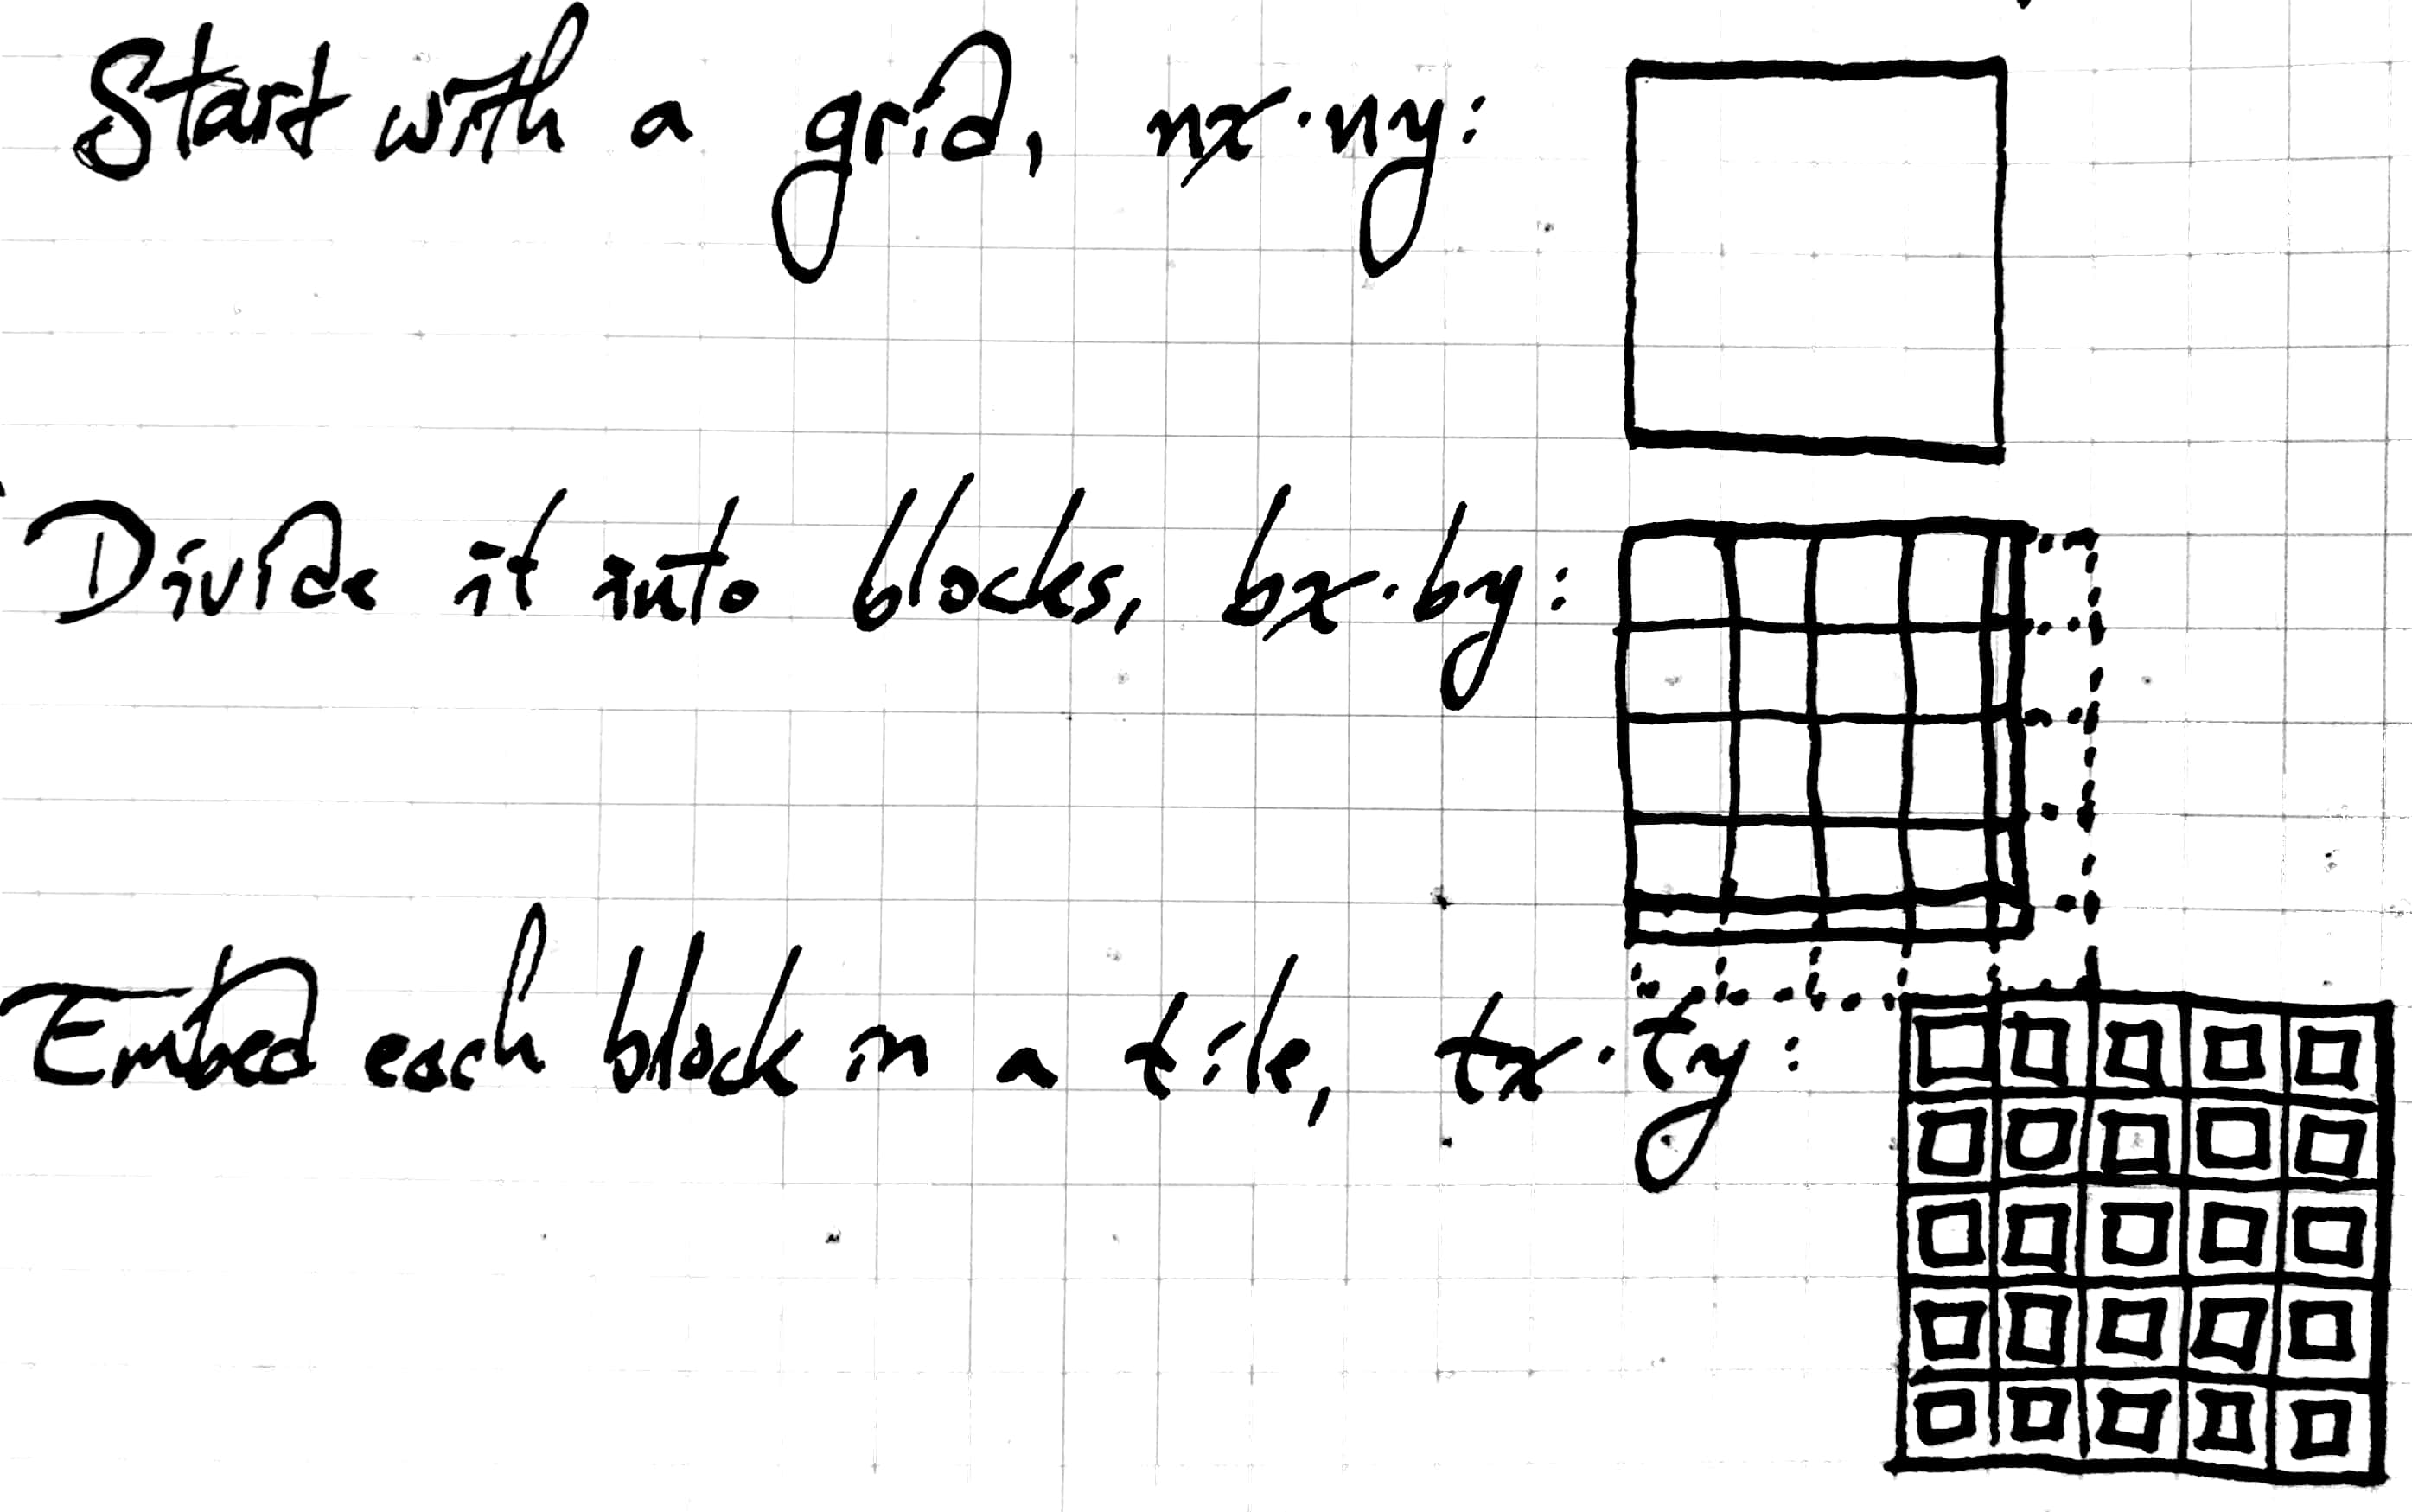 Start with a grid, nx·ny:
Divide it into blocks, bx·by:
Embed each block in a tile, tx·ty: